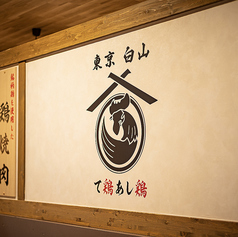 東京 白山
て鶏あし鶏
鶏焼肉